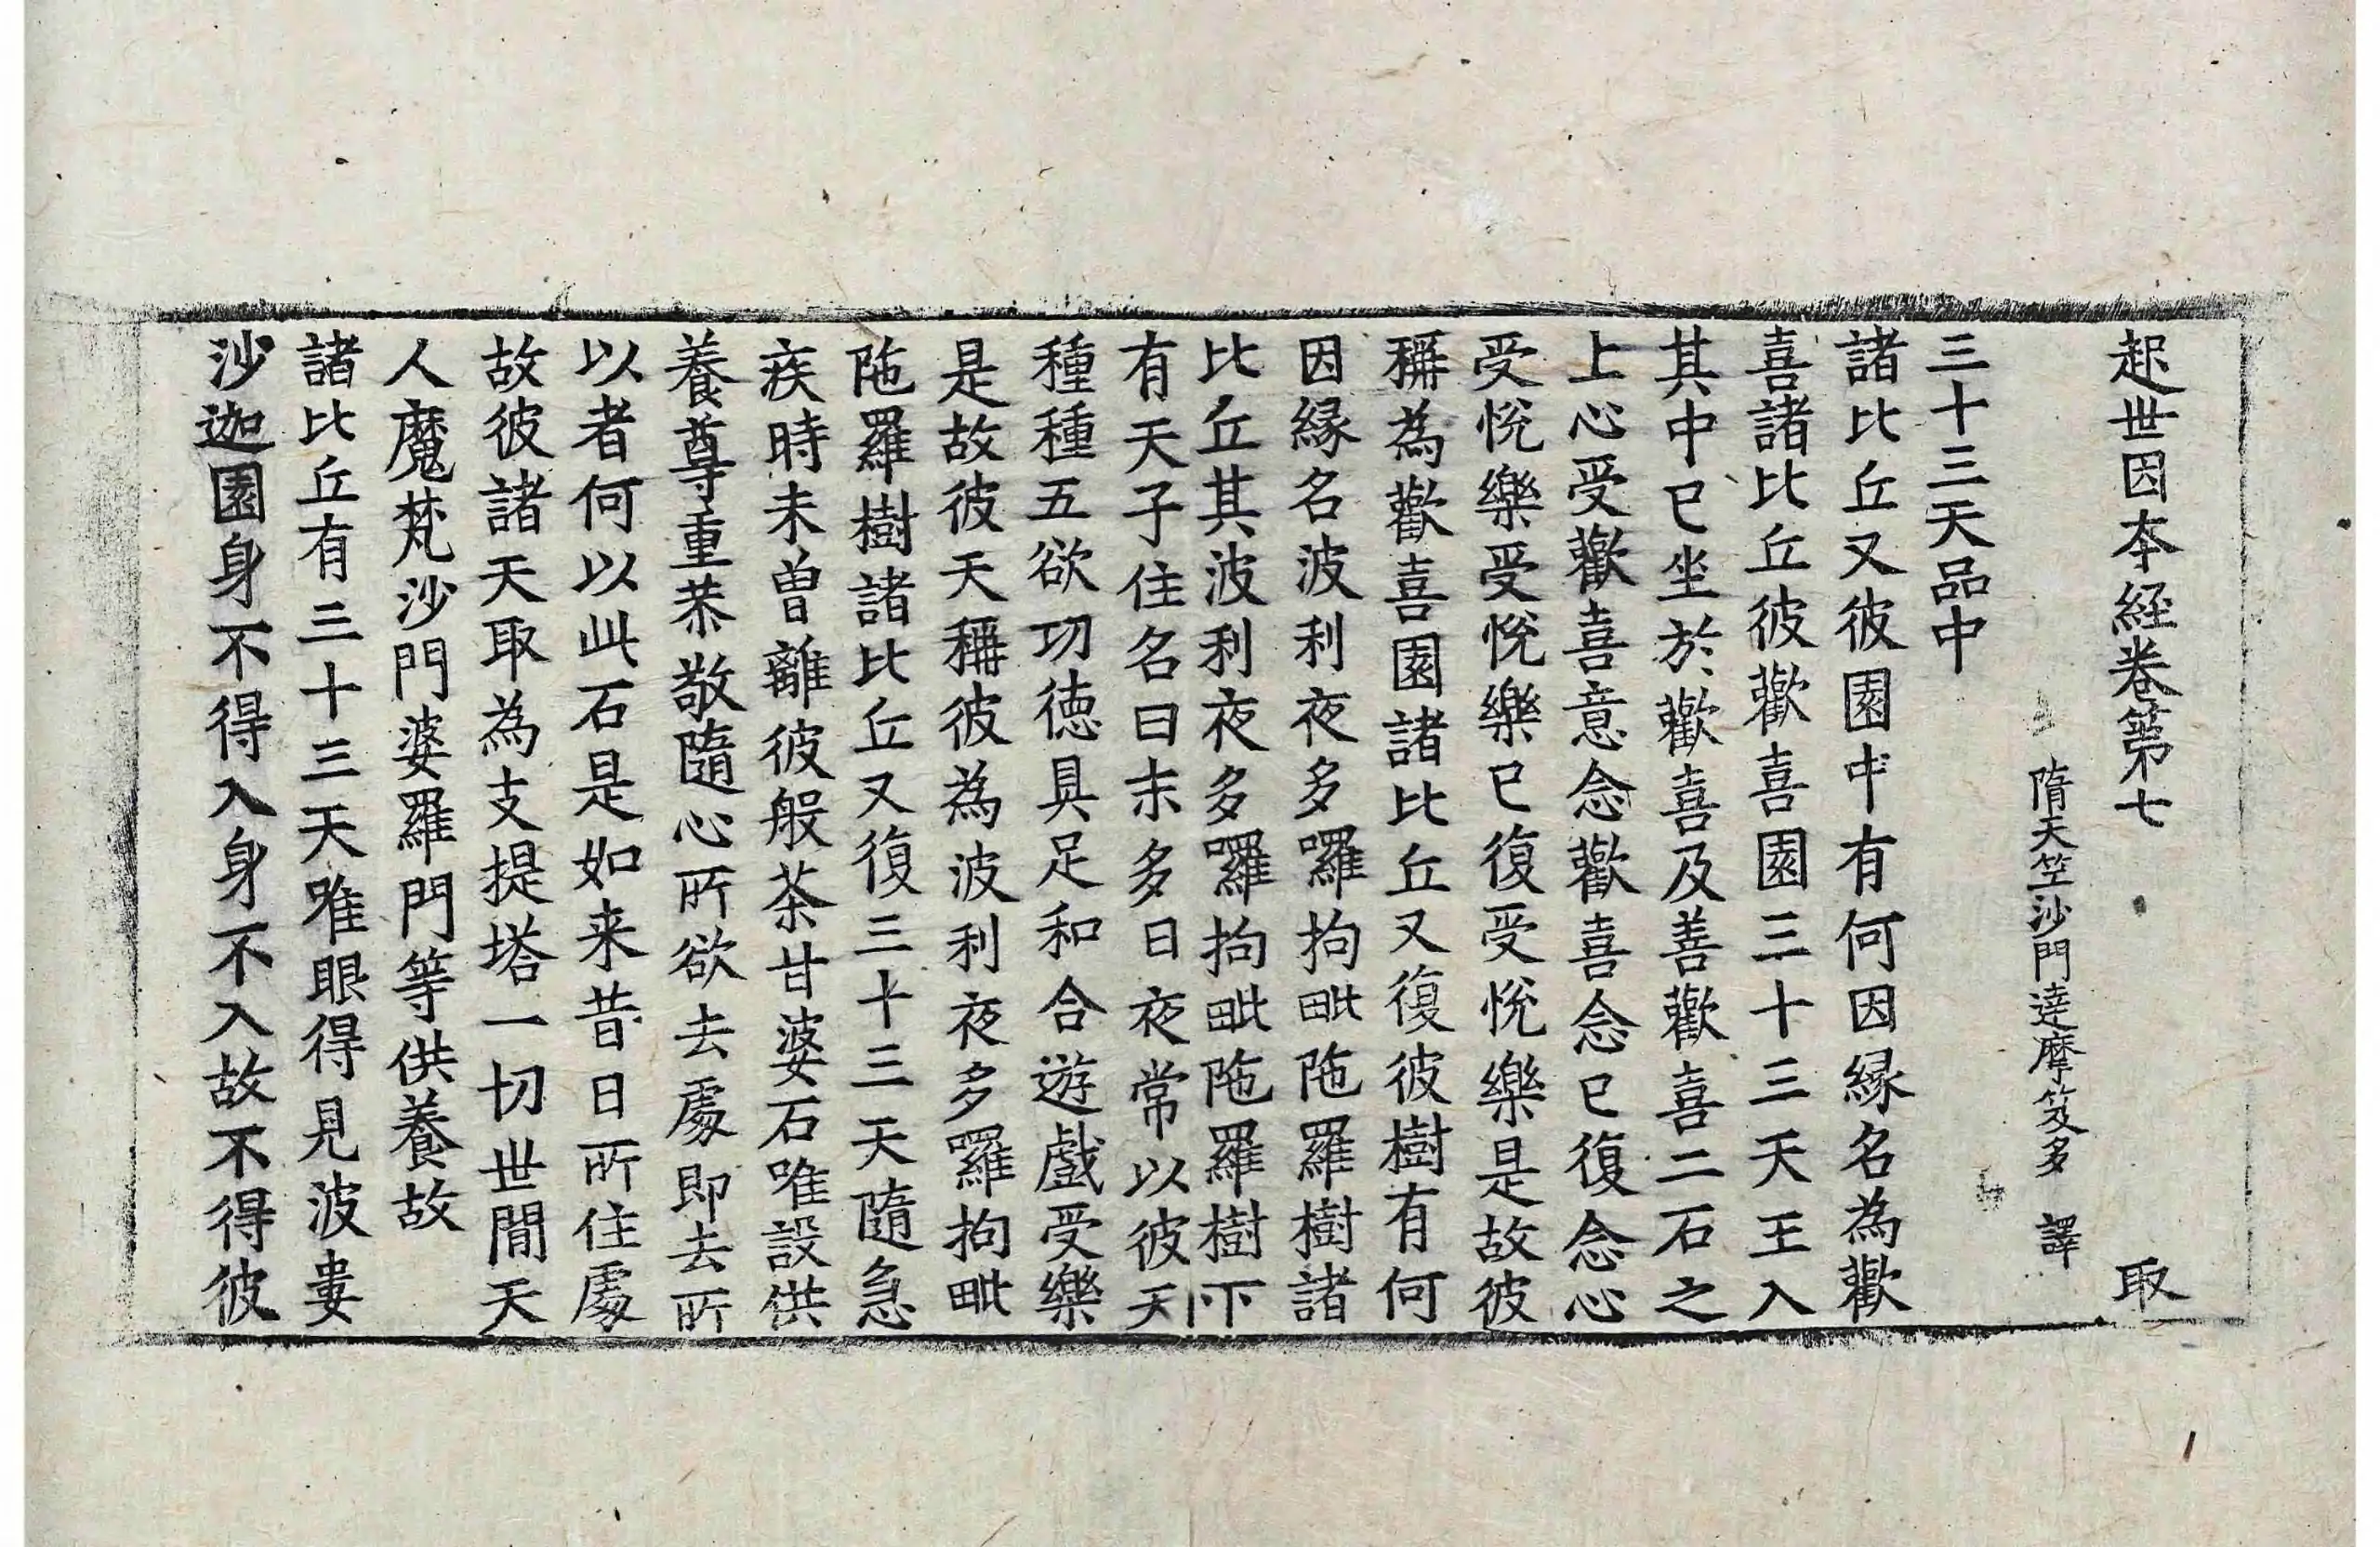 起世因夲經卷第七 取
隋天笁沙門達摩笈多 譯
三十三天品中
諸比丘又彼園中有何因縁名為歡
喜諸比丘彼歡喜園三十三天王入
其中已坐於歡喜及善歡喜二石之
上心受歡喜意念歡喜念已復念心
受悅樂受悅樂已復受悅樂是故彼
稱為歡喜園諸比丘又復彼樹有何
因縁名波利夜多囉拘毗陁羅樹諸
比丘其波利夜多囉拘毗陁羅樹下
有天子住名曰末多日夜常以彼天
種種五欲功德具足和合遊戲受樂
是故彼天稱彼為波利夜多囉拘毗
陁羅樹諸比丘又復三十三天隨急
疾時未曾離彼般茶甘婆石唯設供
養尊重恭敬隨心所欲去處即去所
以者何以此石是如来昔日所住處
故彼諸天取為支提塔一切世間天
人魔梵沙門婆羅門等供養故
諸比丘有三十三天唯眼得見波婁
沙迦園身不得入身不入故不得彼